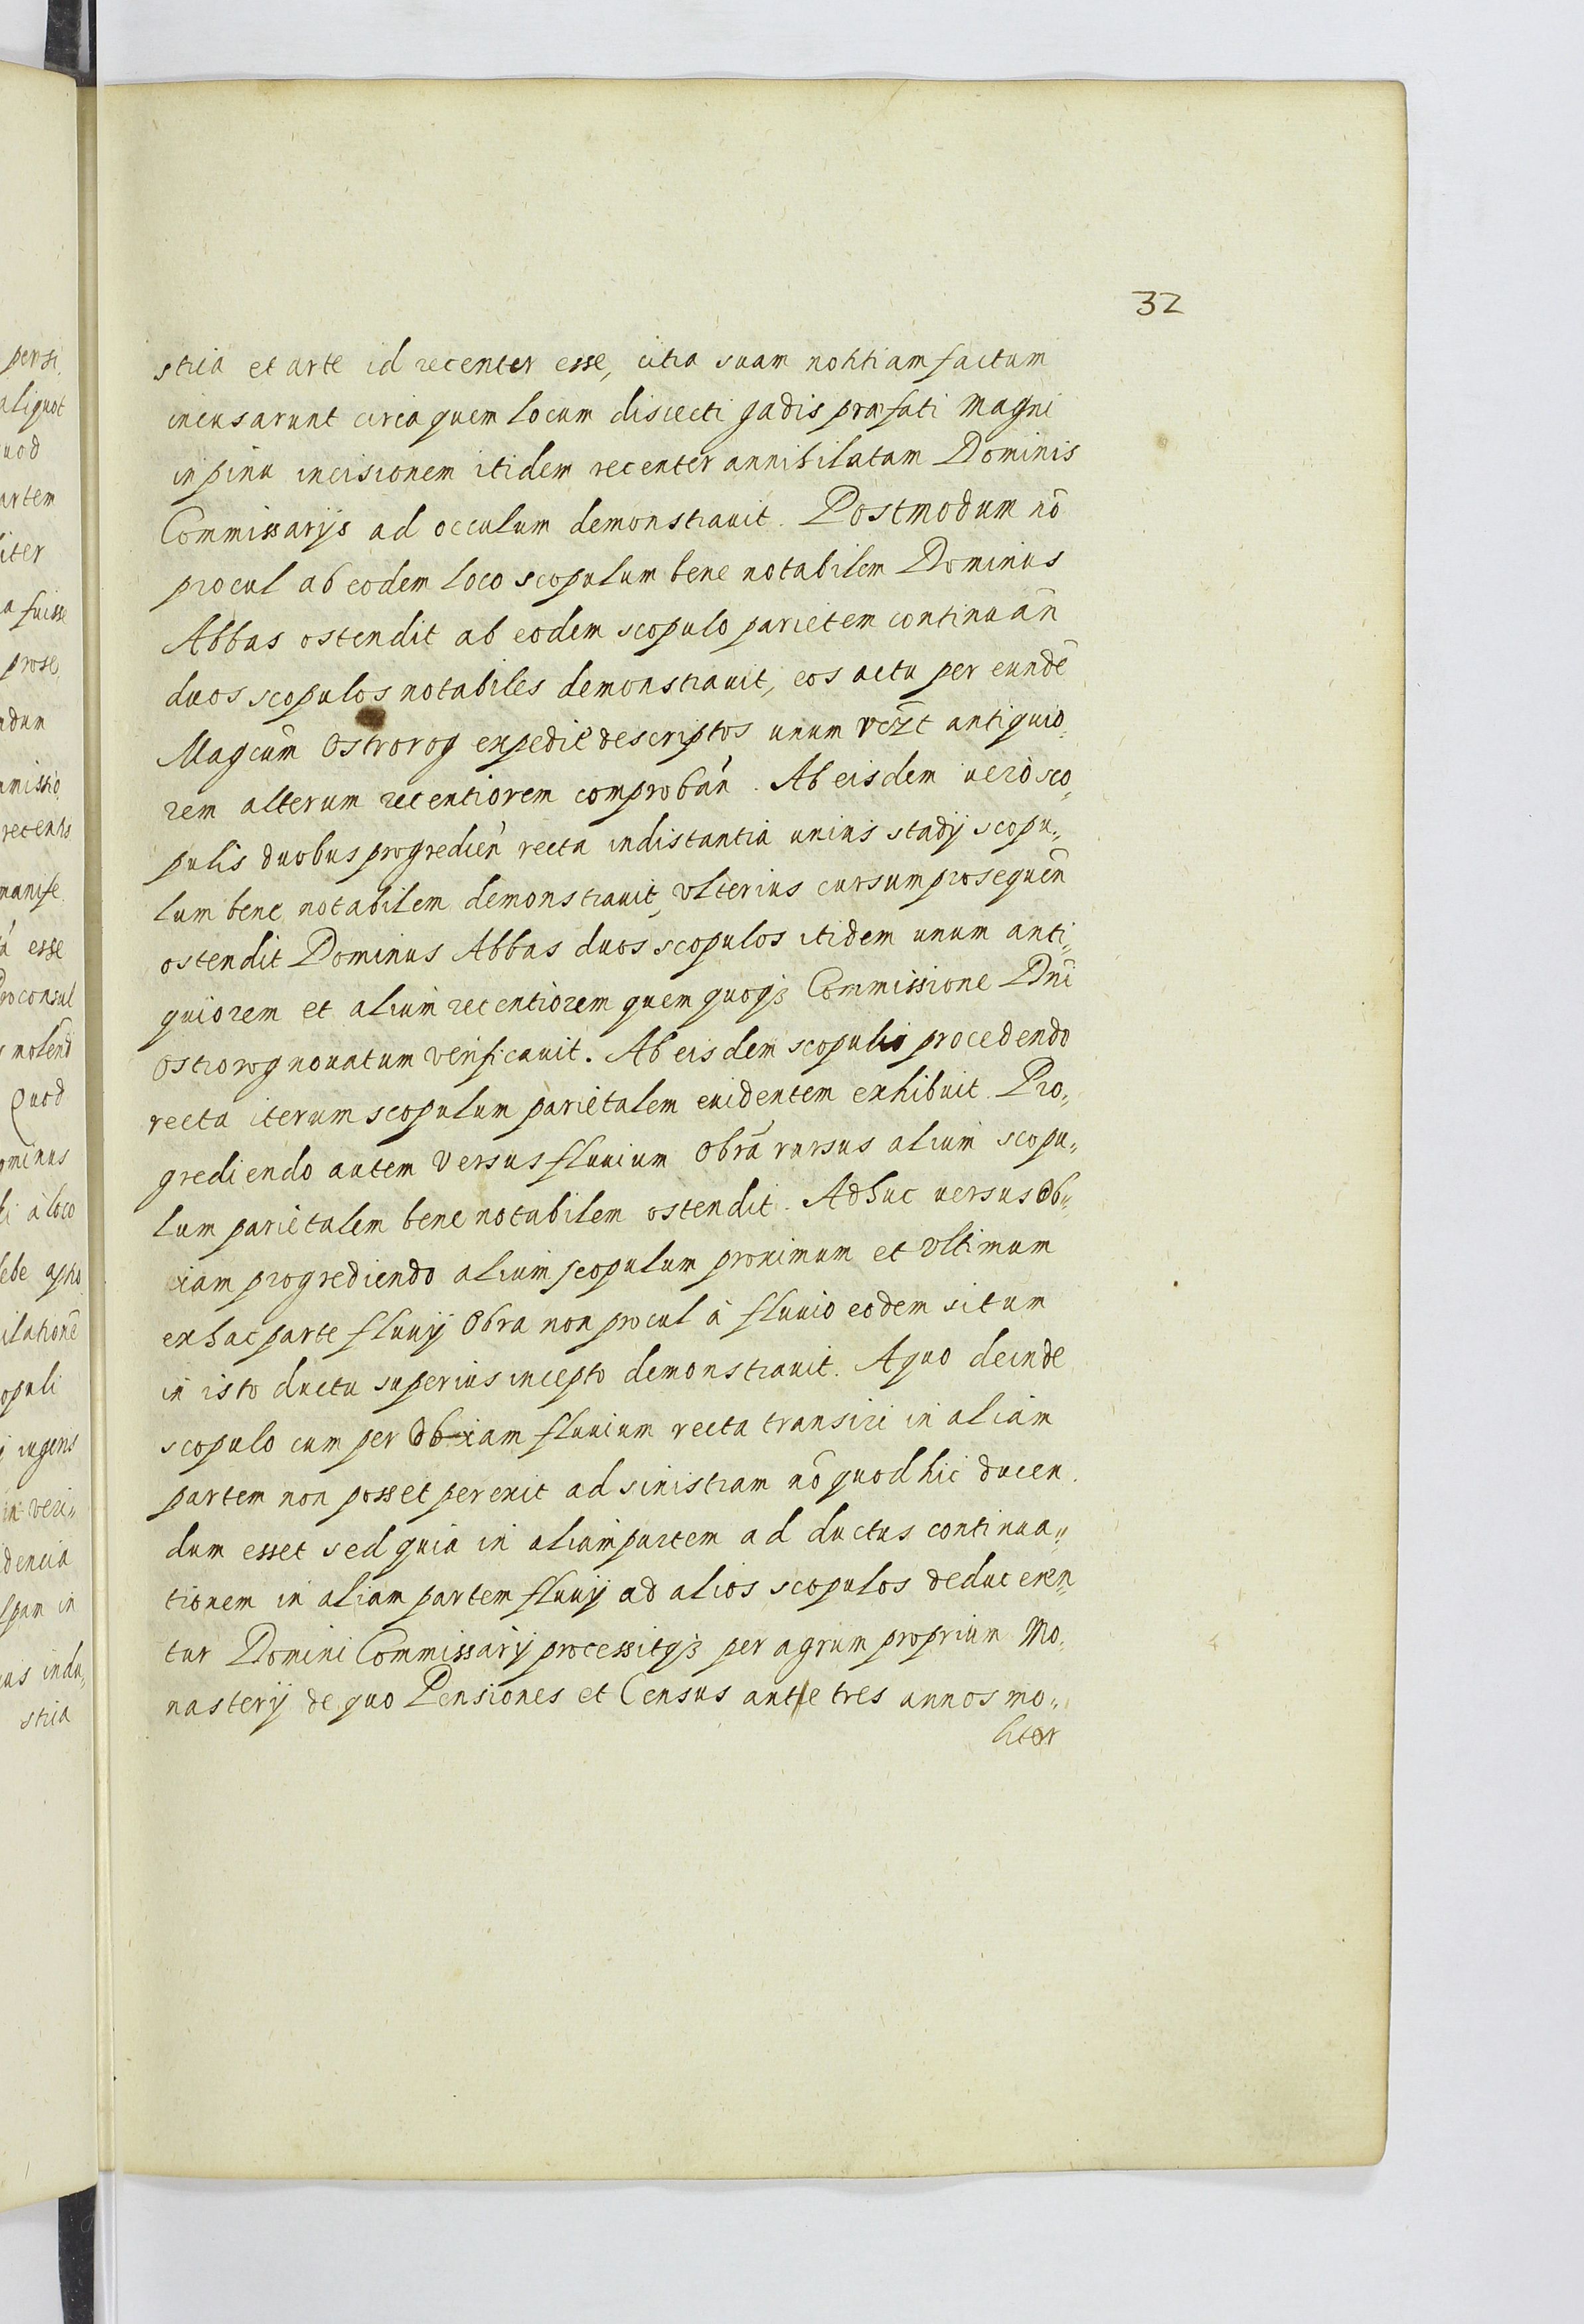 32
stria et arte id recenter esse, citra suam notitiam factum
incusarunt circa quem locum discecti gadis præfati Magni
in pinu incisionem itidem recenter annihilatam Dominis
Commissarijs ad occulum demonstrauit. Postmodum nō
procul ab eodem loco scopulum bene notabilem Dominus
Abbas ostendit ab eodem scopulo parietem continuan̄
duos scopulos notabiles demonstrauit, eos actu per eundē
Magcum̄ Ostrorog expedit̄ descriptos unum vczt antiquio„
rem alterum recentiorem comproban̄. Ab eisdem uero sco„
pulis duobus progredien̄ recta indistantia unius stadij scopu„
lum bene notabilem demonstrauit, vlterius cursum prosequen̄
ostendit Dominus Abbas duos scopulos itidem unum anti„
quiorem et alium recentiorem quem quoqȝ Commissione Dni
Ostrorog nouatum verificauit. Ab eisdem scopulis procedendo
recta iterum scopulum parietalem euidentem exhibuit. Pro„
grediendo autem versus fluuium Obrā rursus alium scopu„
lum parietalem bene notabilem ostendit. Adhuc uersus Ob„
ram progrediendo alium scopulum proximum et vltimum
ex hac parte fluuij Obra non procul à fluuio eodem situm
in isto ductu superius incepto demonstrauit. A quo deinde
scopulo cum per Obram fluuium recta transiri in aliam
partem non posset perexit ad sinistram nō quod hic ducen„
dum esset sed quia in aliam partem ad ductus continua„
tionem in aliam partem fluuij ad alios scopulos deduceren„
tur Domini Commissarij processitqȝ per agrum proprium Mo„
nasterij de quo Pensiones et Census ante tres annos mo„
liter
persi„
aliquot
uod
artem
iter
a fuisse
prose„
ndum
mmissio„
recenti
manife„
esse
Proconsul
molend
Quod
ominus
à loco
ilationē
opuli
iugeris
in veri„
dencia
in
us indu„
stria